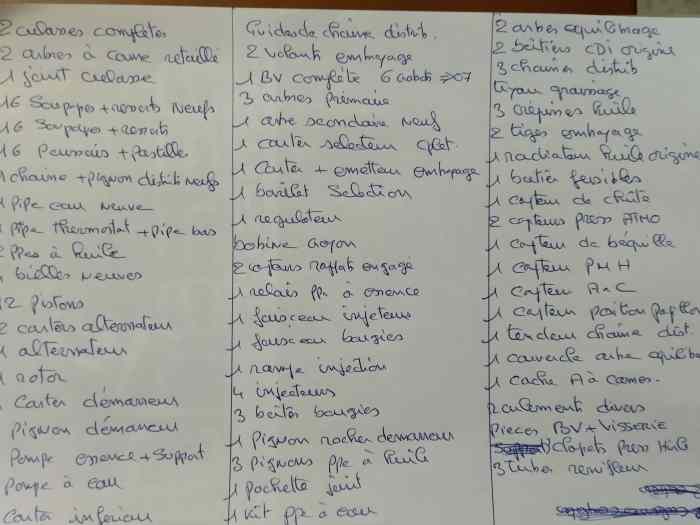 2 culasses complètes
2 arbres à came retaillé
1 joint culasse
16 Soupapes + ressorts Neufs
16 Soupapes + ressorts
16 Poussoirs + pastille
1 chaine + pignon distrib Neufs
1 pipe eau neuve
1 pipe thermostat + pipe bas
2 ppes à huile
bielles neuves
12 pistons
2 carters alternateur
1 alternateur
1 rotor
Carter démarreur
pignon démarreur
Pompe essence + Support
Pompe à eau
Carter inférieur
Guides de chaine distrib.
2 volants embrayage
1 BV complète 6 Rabdt => 07
3 arbres primaire
1 arbre secondaire neuf
1 carter selecteur cplet.
1 Carter + emetteur embrayage
1 barillet Selection
1 regulateur
bobine crayon
2 capteurs rapport engagé
1 relais ppe à essence
1 faisceau injecteur
1 faisceau bougies
1 rampe injection
4 injecteurs
3 boites bougies
1 pignon rocher demarreur
3 pignons ppe à huile
1 pochette joint
1 kit ppe à eau
2 arbres equilibrage
2 boitiers CDI origine
3 chaines distrib
tuyau graissage
3 crépines huile
2 tiges embrayage
1 radiateur huile origine
1 boitier fusibles
1 capteur de chute
2 capteurs Press ATMO
1 capteur de béquille
1 capteur PMH
1 capteur AàC
1 capteur position papillon
1 tendeur chaine dist.
1 couvercle arbre equilib
1 cache A à Cames.
roulements divers
pieces BV + Visserie
clapets Press Huile
3 tubes renifleur